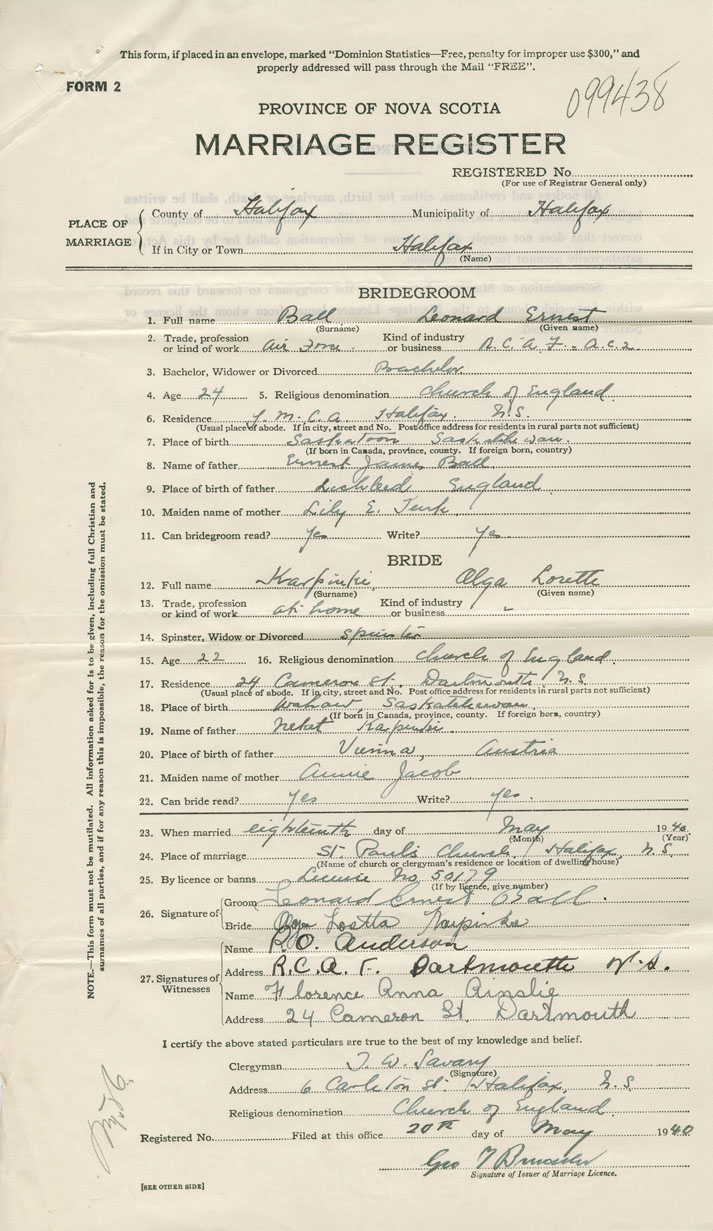 This form, if placed in an envelope, marked "Dominion Statistics—Free, penalty for improper use $300," and
properly addressed will pass through the Mail "FREE".
FORM 2
099438
PROVINCE OF NOVA SCOTIA
MARRIAGE REGISTER
REGISTERED No.
(For use of Registrar General only)
PLACE OF MARRIAGE
County of Halifax Municipality of Halifax
If in City or Town Halifax
(Name)
BRIDEGROOM
1. Full name Ball Leonard Ernest
(Surname) (Given name)
2. Trade, profession or kind of work Air Force Kind of industry or business R.C.A.F. - A.C.2
3. Bachelor, Widower or Divorced Bachelor
4. Age 24 5. Religious denomination Church of England
6. Residence Y.M.C.A Halifax N.S.
(Usual place of abode. If in city, street and No. Post office address for residents in rural parts not sufficient)
7. Place of birth Saskatoon Saskatchewan
(If born in Canada, province, county. If foreign born, country)
8. Name of father Ernest James Ball
9. Place of birth of father England
10. Maiden name of mother Lily E.
11. Can bridegroom read? Yes Write? Yes
BRIDE
12. Full name Karpinki, Olga Loretta
(Surname) (Given name)
13. Trade, profession or kind of work at home Kind of industry or business -
14. Spinster, Widow or Divorced Spinster
15. Age 22 16. Religious denomination Church of England
17. Residence 24 Cameron St. Dartmouth N.S.
(Usual place of abode. If in city, street and No. Post office address for residents in rural parts not sufficient)
18. Place of birth Wakaw, Saskatchewan
(If born in Canada, province, county. If foreign born, country)
19. Name of father Karpinki
20. Place of birth of father Vienna, Austria
21. Maiden name of mother Annie Jacob
22. Can bride read? Yes Write? Yes.
23. When married eighteenth day of May 1940
(Month) (Year)
24. Place of marriage St. Paul's Church, Halifax, N.S.
(Name of church or clergyman's residence or location of dwelling house)
25. By licence or banns License No. 50179
(If by licence, give number)
26. Signature of
Groom Leonard Ernest Ball.
Bride Olga Loretta Karpinke
27. Signatures of Witnesses
Name R.O. Anderson
Address R.C.A.F. Dartmouth N.S.
Name Florence Anna Ainslie
Address 24 Cameron St. Dartmouth
I certify the above stated particulars are true to the best of my knowledge and belief.
Clergyman T. W. Savary
(Signature)
Address 6 Carleton St. Halifax, N.S.
Religious denomination Church of England
Registered No. Filed at this office 20th day of May 1940
Geo
Signature of Issuer of Marriage Licence.
[SEE OTHER SIDE]
NOTE.—This form must not be mutilated. All information asked for is to be given, including full Christian and
surnames of all parties, and if for any reason this is impossible, the reason for the omission must be stated.